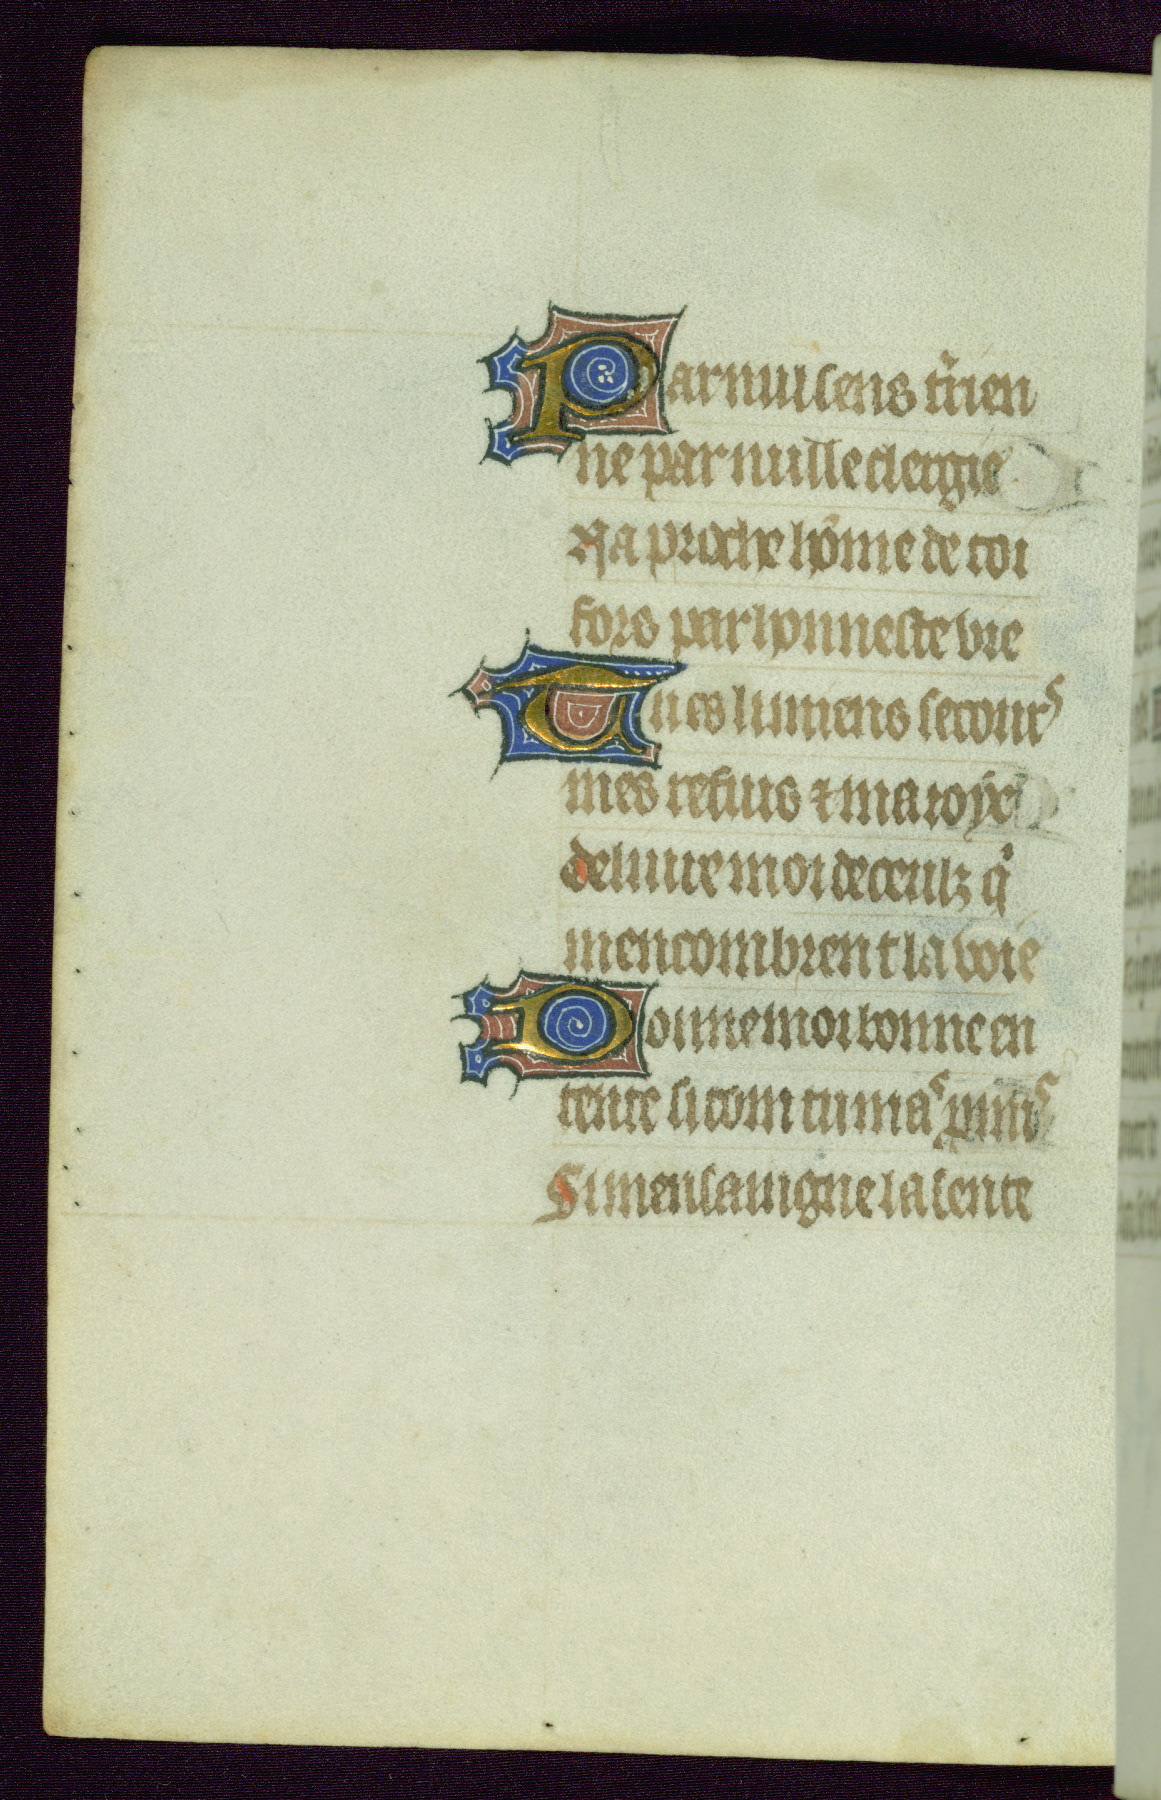 Par nul sens t̾rien
ne par nulle clergie
Na proche hōme de toi
fors par honneste vie
Tu es lumens secours
mes refuis ⁊ ma ioye
deliure moi de ceulz q̇
mencombrent la voie
Donne moi bonne en
tente si com tu mas pmis
Si mensauigne la sente